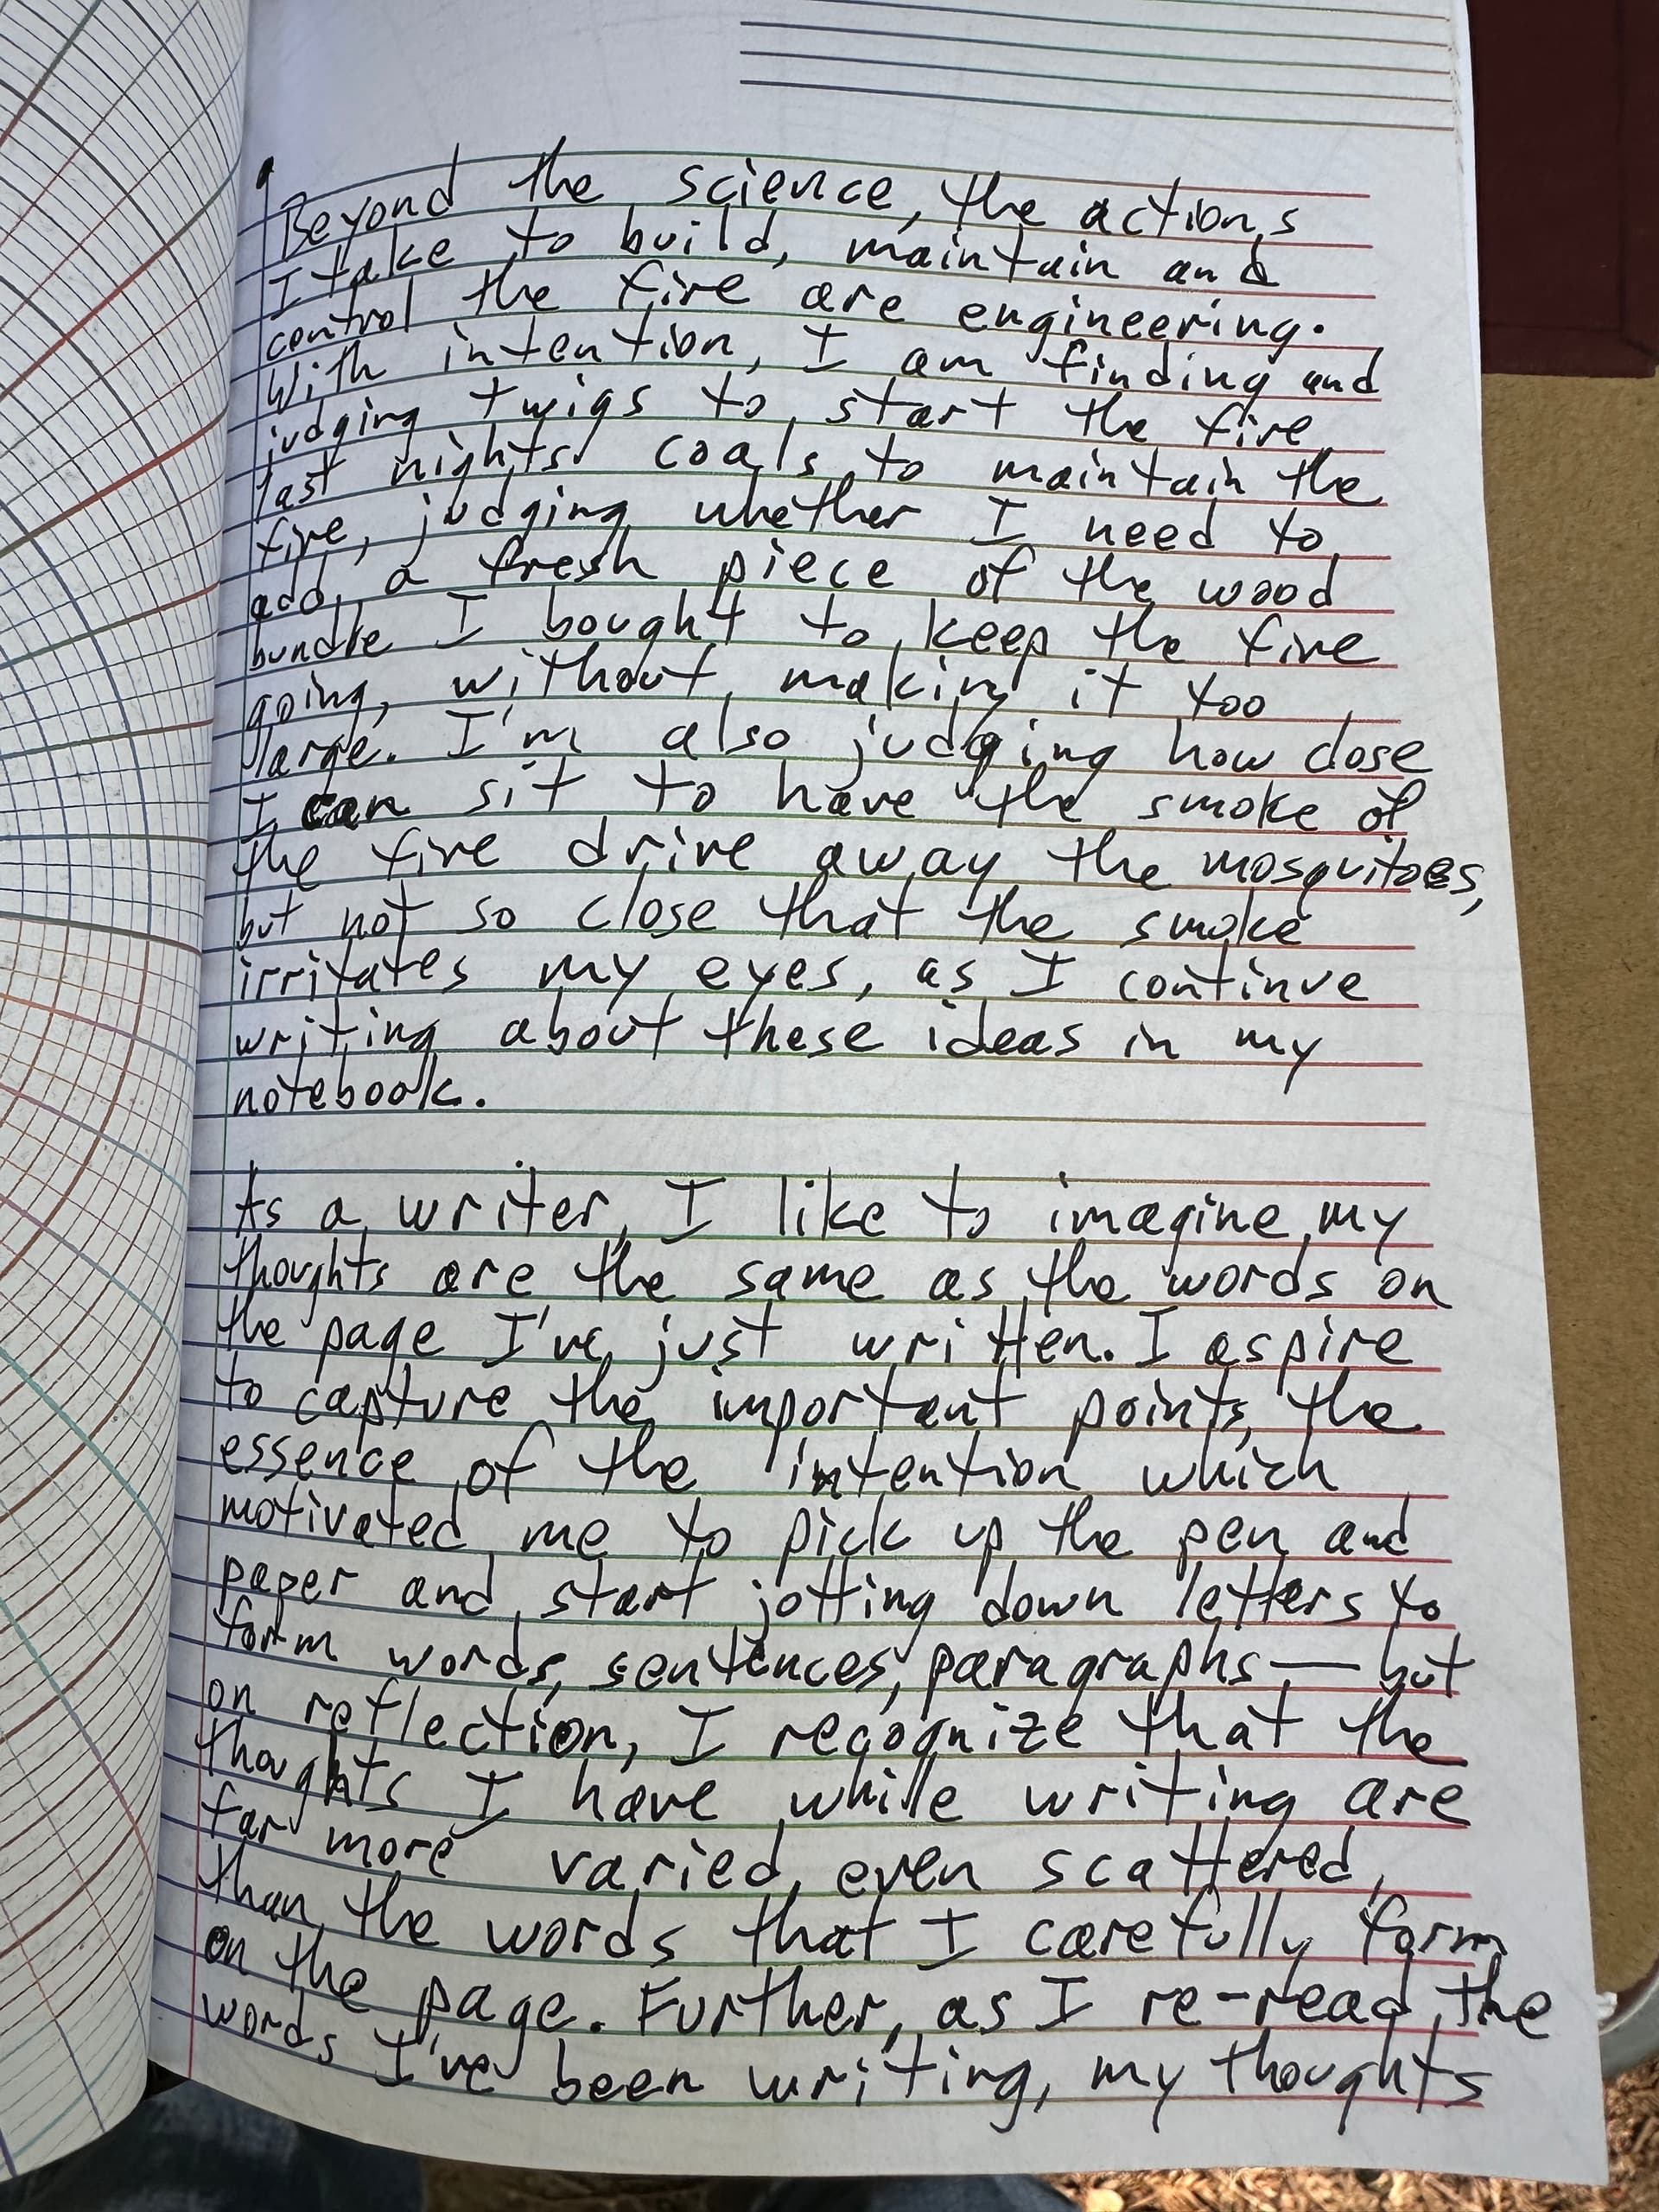 Beyond the science, the actions
I take to build, maintain and
control the fire are engineering.
With intention, I am finding and
judging twigs to start the fire,
last nights' coals to maintain the
fire, judging whether I need to
add a fresh piece of the wood
bundle I bought to keep the fire
going, without making it too
large. I'm also judging how close
I can sit to have the smoke of
the fire drive away the mosquitoes,
but not so close that the smoke
irritates my eyes, as I continue
writing about these ideas in my
notebook.
As a writer, I like to imagine my
thoughts are the same as the words on
the page I've just written. I aspire
to capture the important points, the
essence of the intention which
motivated me to pick up the pen and
paper and start jotting down letters to
form words, sentences, paragraphs — but
on reflection, I recognize that the
thoughts I have while writing are
far more varied, even scattered,
than the words that I carefully form
on the page. Further, as I re-read the
words I've been writing, my thoughts